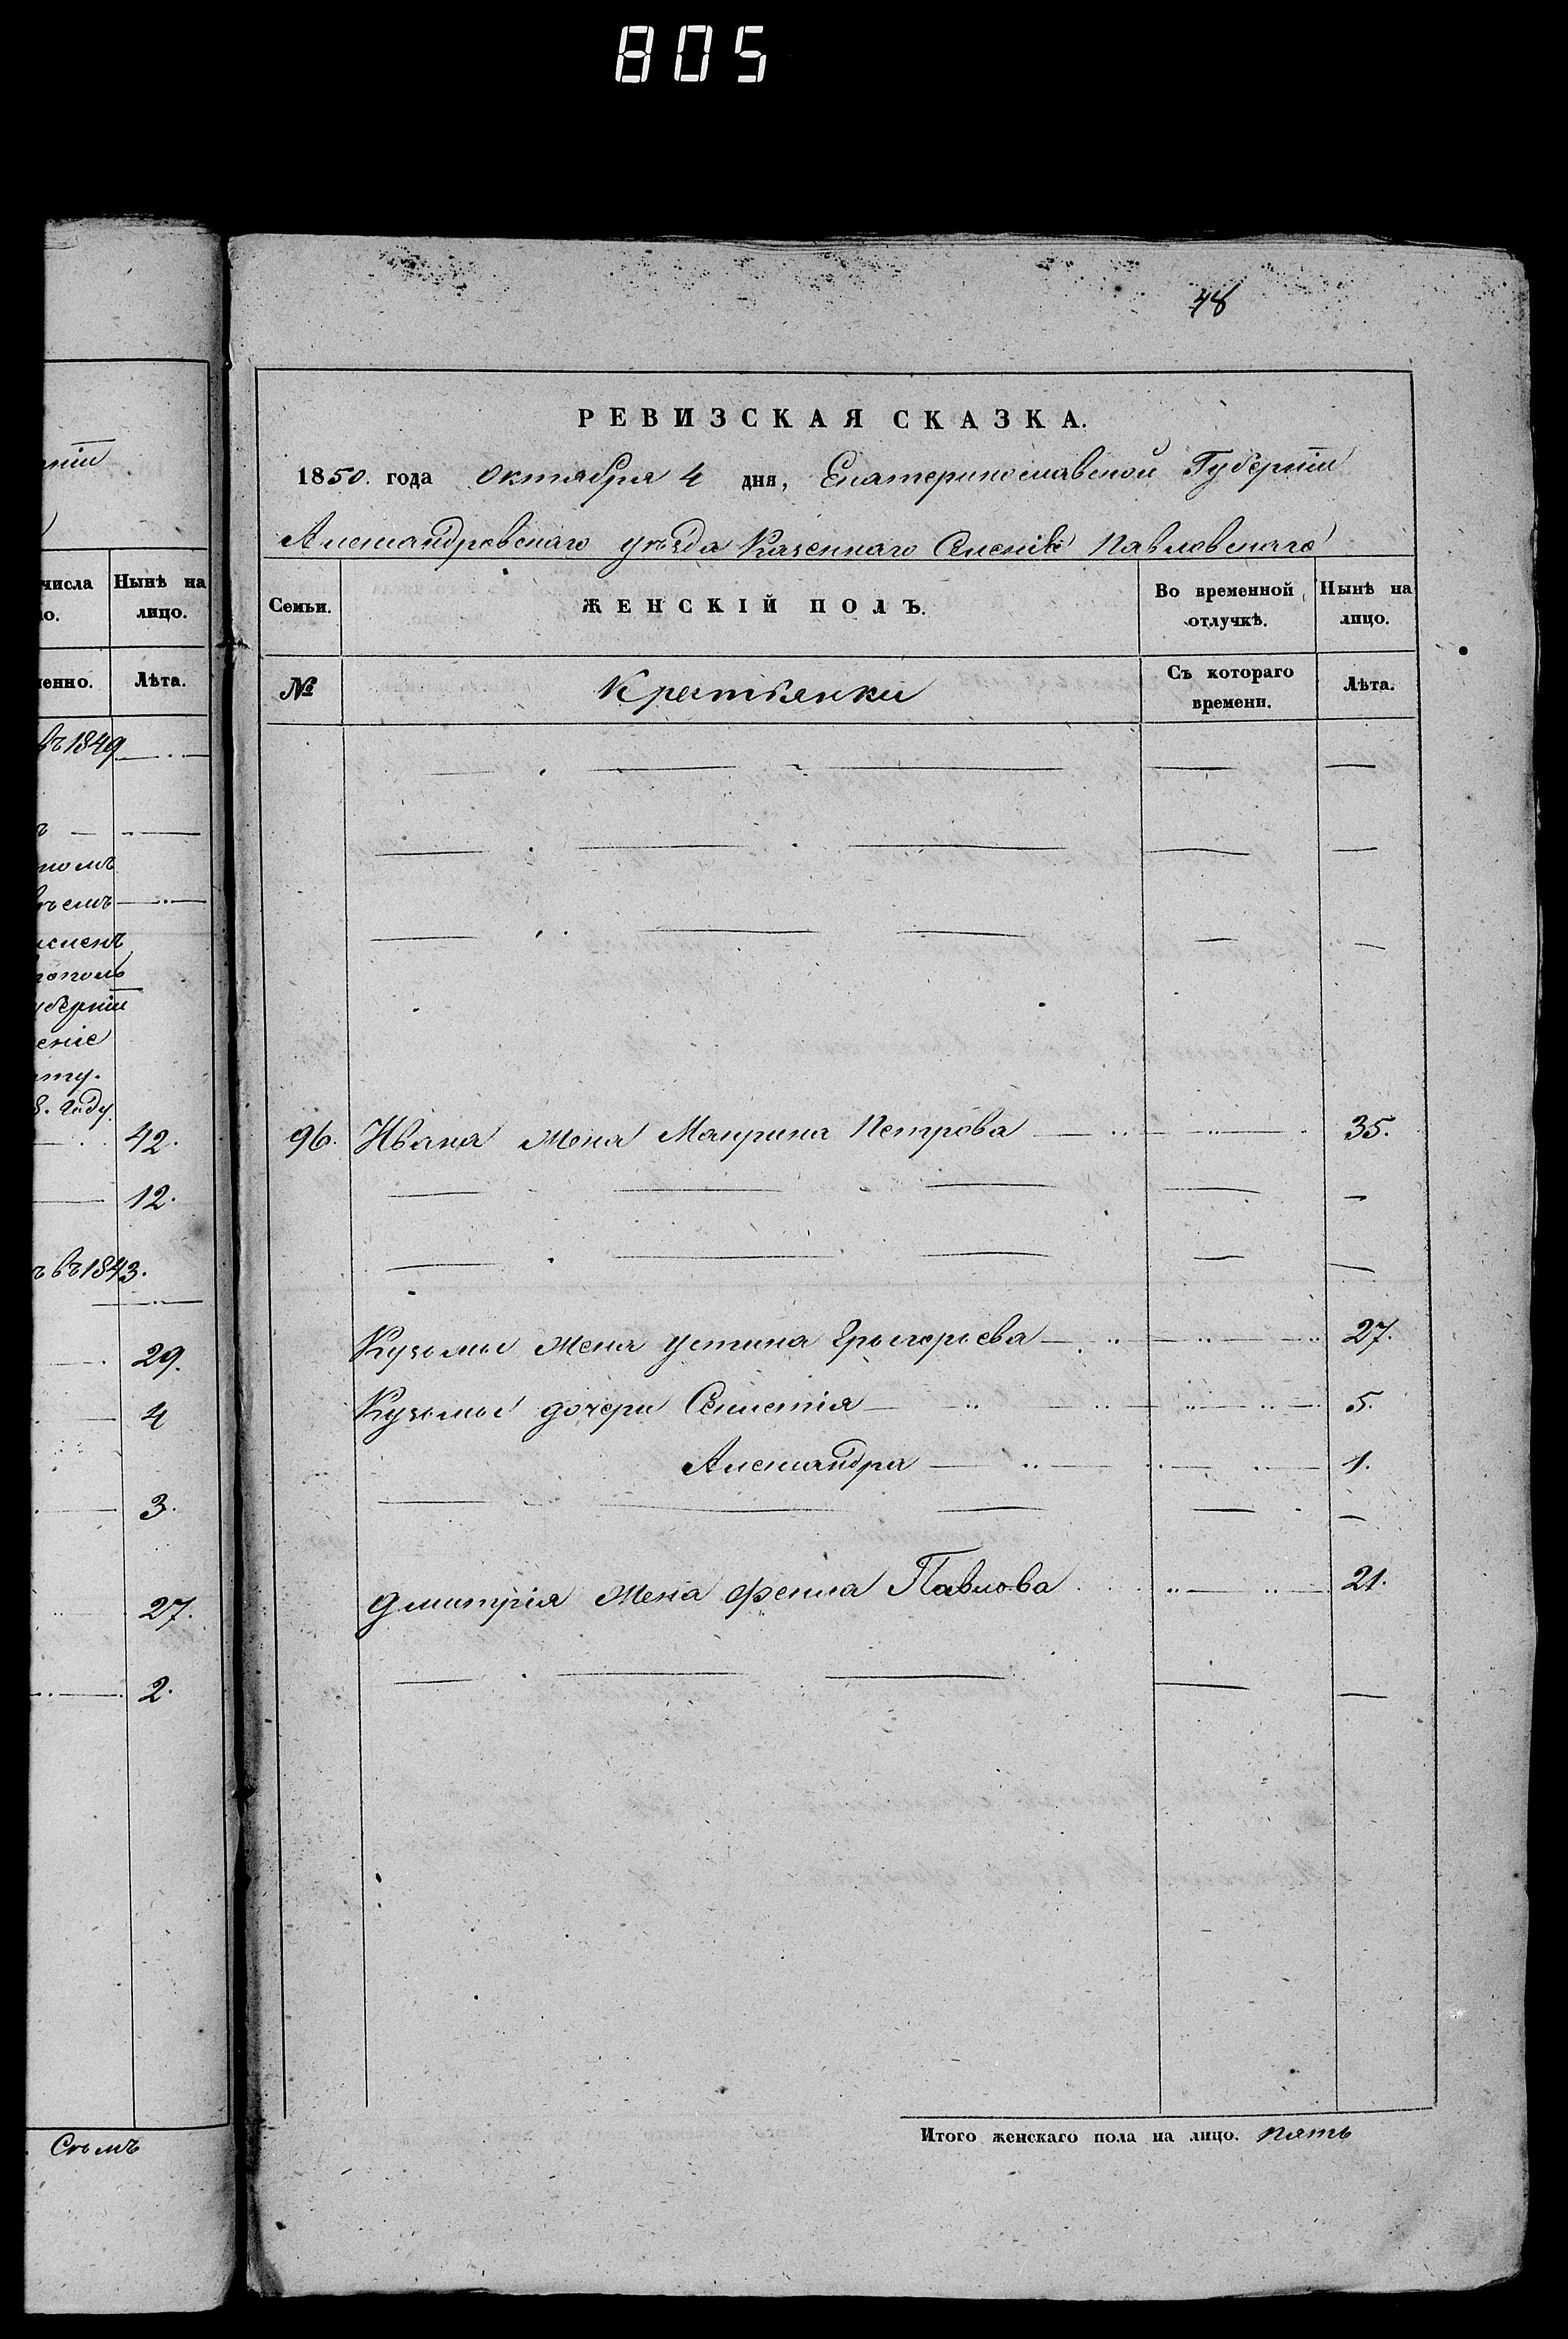 805
48
РЕВИЗСКАЯ СКАЗКА.
1850. года Октября 4 дня, Екатеринославской Губерніи
Александровскаго уѣзда Казеннаго Селенія Павловскаго
Семьи.
ЖЕНСКІЙ ПОЛЪ.
Во временной отлучкѣ.
Нынѣ на лицо.
№
Крестьянки
Съ котораго времени.
Лѣта.
96. Ивана жена Маприна Петрова 35.
Кузьмы жена Устина Григорьева 27.
Кузьмы дочери 5.
Александра 1.
Дмитрія жена Фекла Павлова 21.
Итого женскаго пола на лицо. пять
ніи
числа
Нынѣ на
о.
лицо.
енно.
Лѣта.
въ 1849
омъ
губерніи
еніе
8. году
42.
12.
въ 1843.
29.
4
3.
27.
2.
Семь